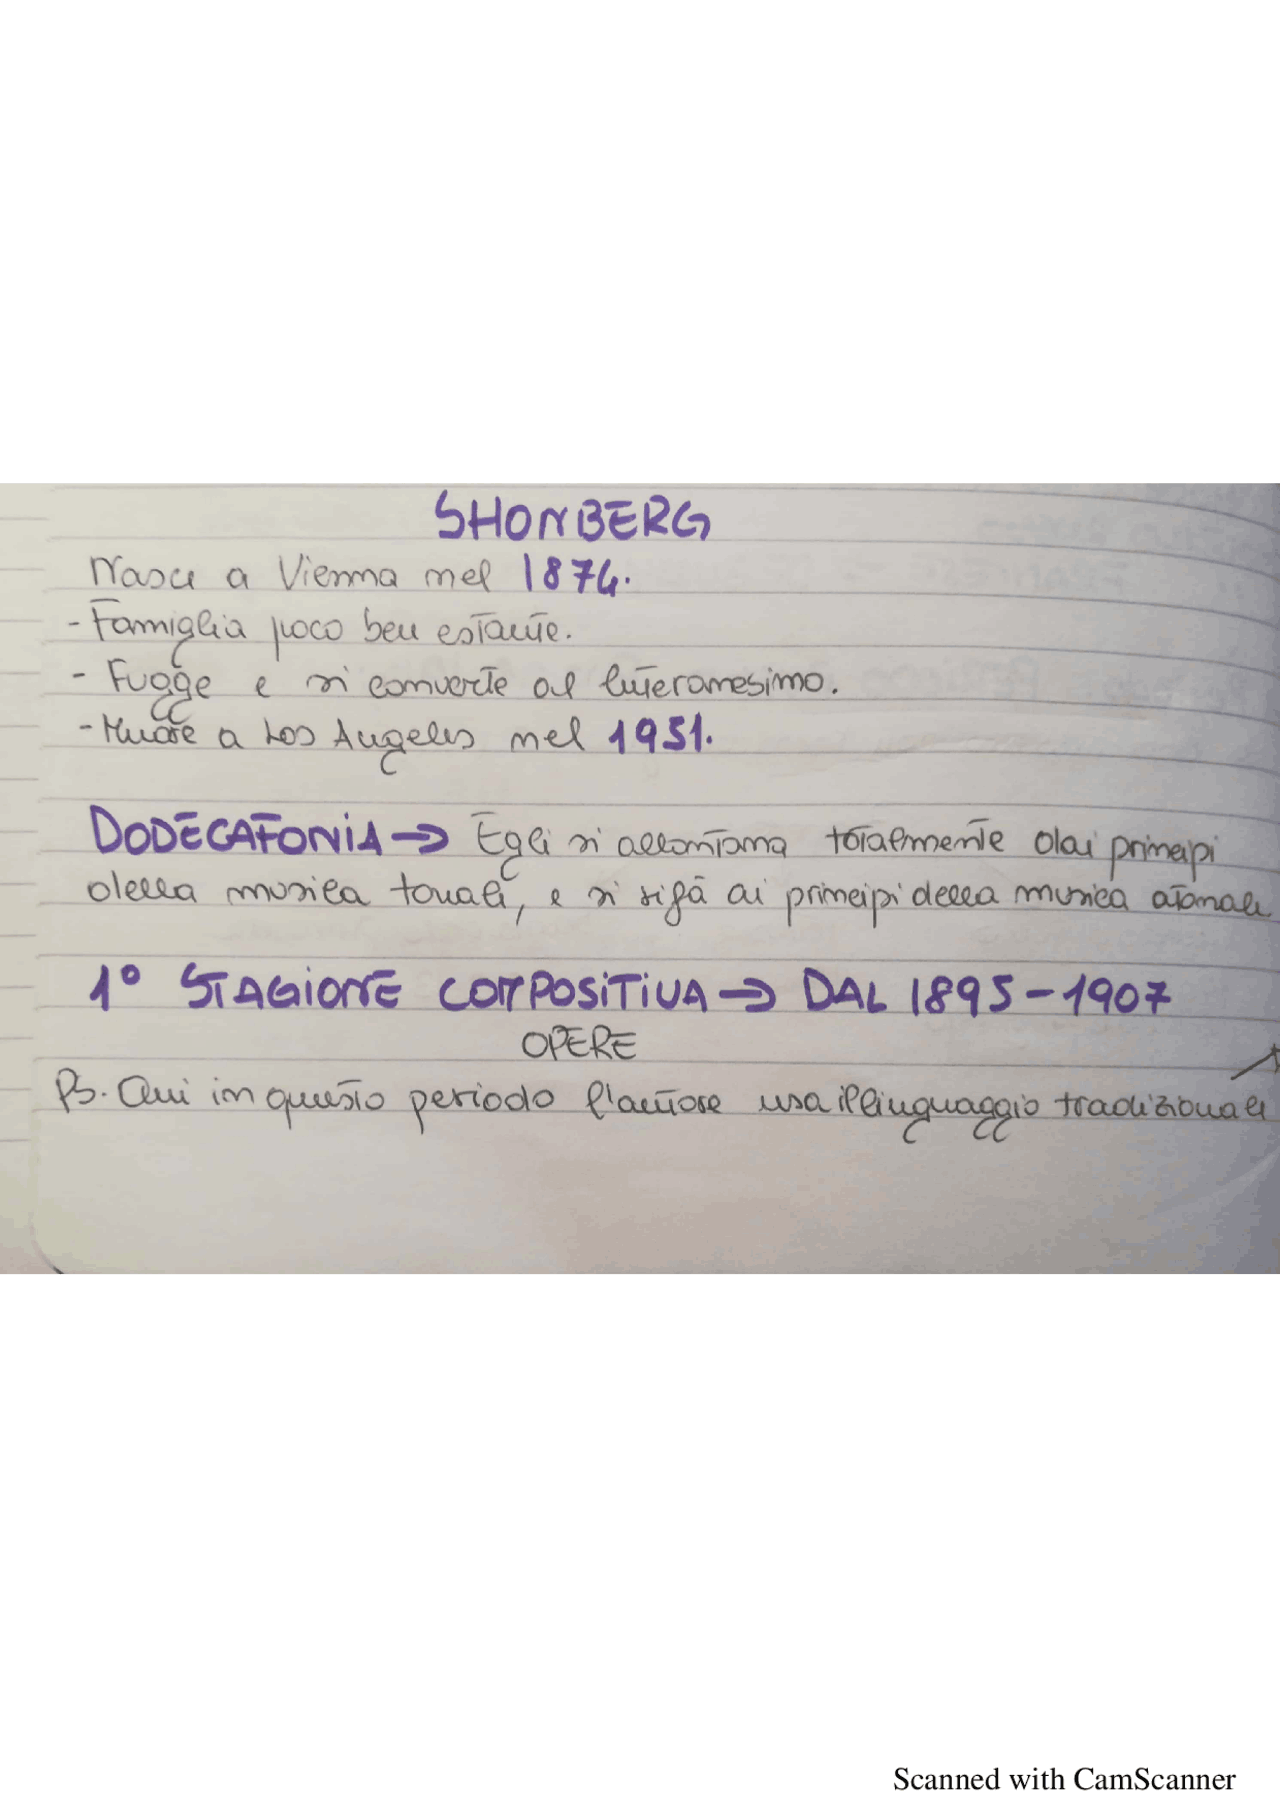 SHONBERG
Nasce a Vienna nel 1874.
- Famiglia poco ben estante.
- Fugge e si converte al luteranesimo.
- Muore a Los Angeles nel 1951.
DODECAFONIA → Egli si allontana totalmente dai principi
della musica tonale, e si rifà ai principi della musica atonale
1° STAGIONE COMPOSITIVA → DAL 1895-1907
OPERE
PS. Qui in questo periodo l'autore usa il linguaggio tradizionale
Scanned with CamScanner